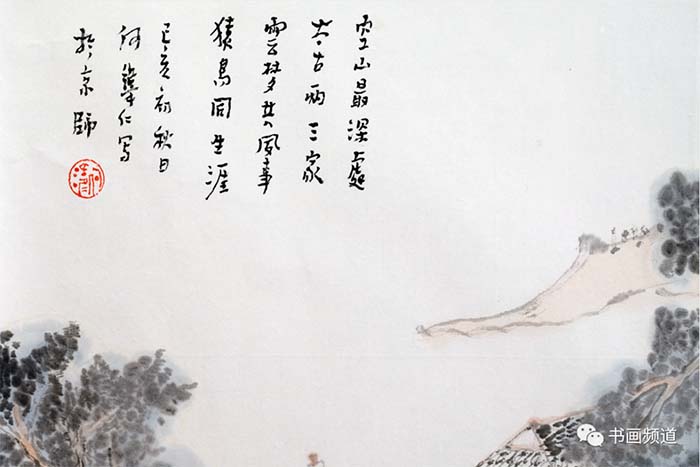 空山最深處
太古兩三家
雲梦共風事
猿鳥同生涯
己亥初秋日
何仁写
於京師
书画频道